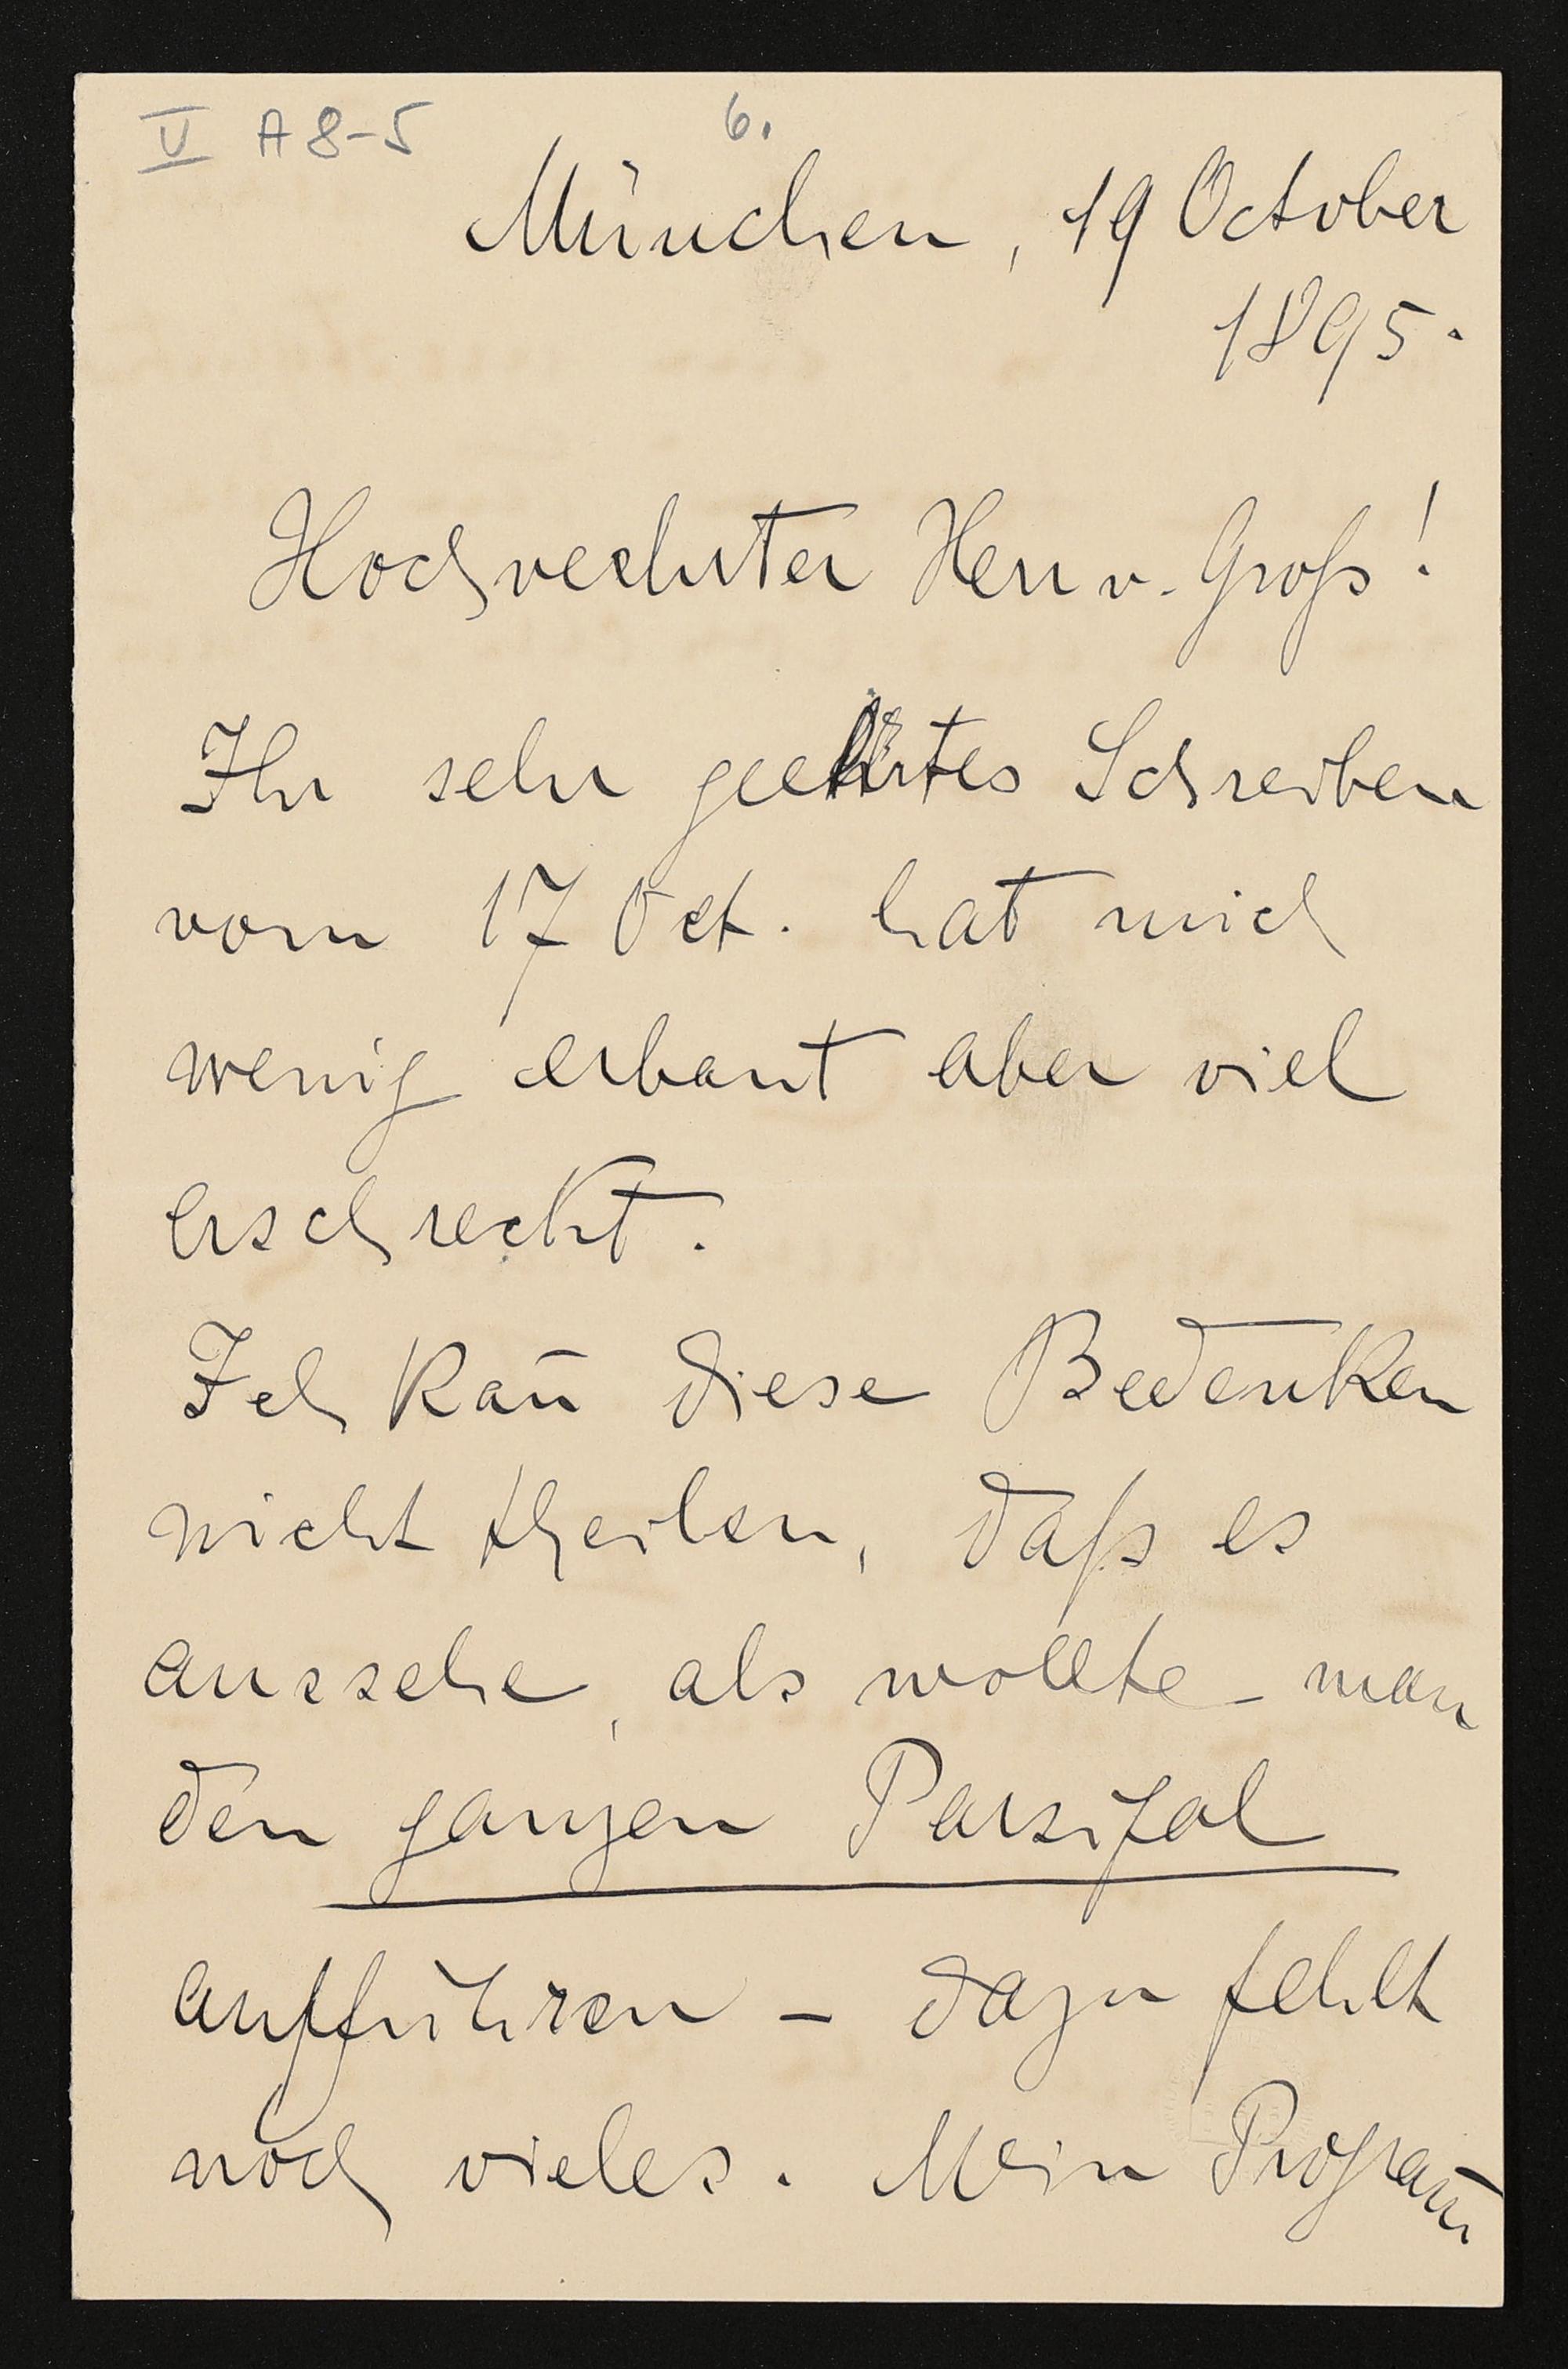 V A 8-5
6.
München, 19 October
1895.
Hochverehrter Herr v. Groß!
Ihr sehr geehrtes Schreiben
vom 17 Oct. hat mich
wenig erbaut aber viel
erschreckt.
Ich kañ diese Bedenken
nicht theilen, daß es
aussehe, als wollte man
den ganzen Parsifal
aufführen – dazu fehlt
noch vieles. Mein Program̅